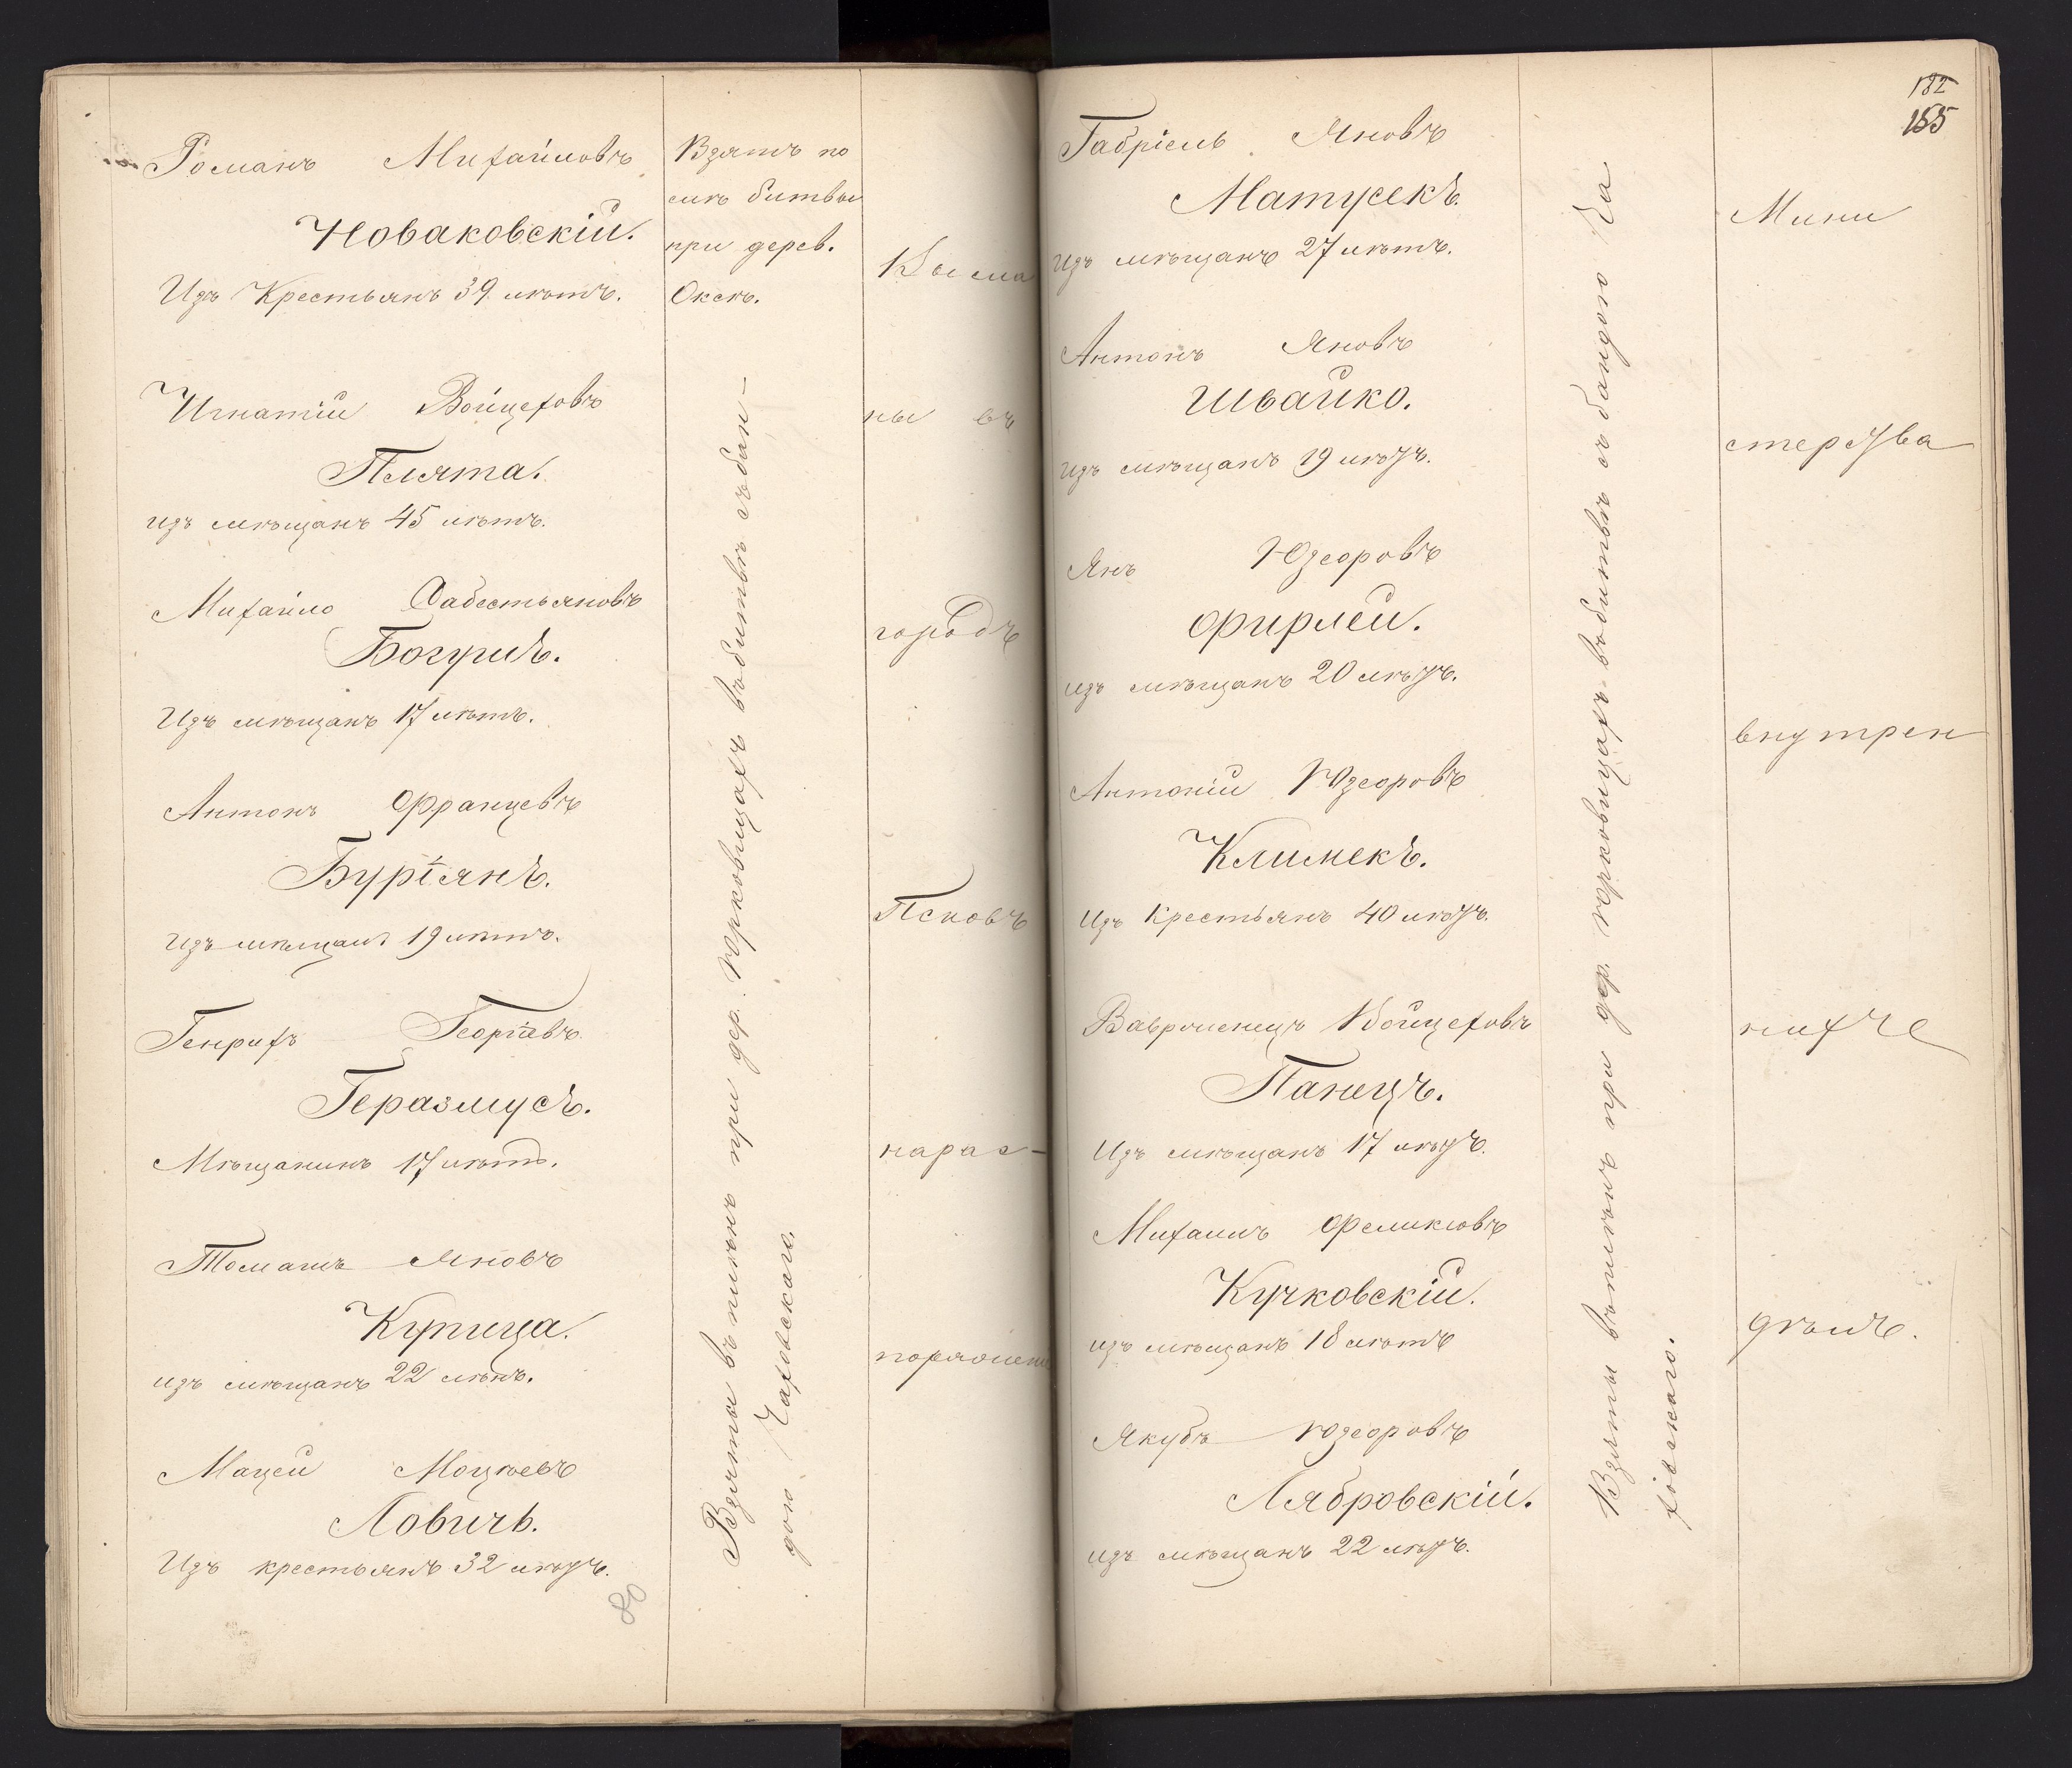 Романъ Михайловъ
Новаковскій.
Изъ Крестьянъ 39 лѣтъ.
Игнатій Войцеховъ
Плята.
изъ мѣщанъ 45 лѣтъ.
Михайло Сабестьяновъ
Богушъ.
Изъ мѣщанъ 17 лѣтъ.
Антонъ Францевъ
Буріянъ.
изъ мѣщанъ 19 лѣтъ.
Генрихъ Георгіевъ
Геразмусъ.
Мѣщанинъ 17 лѣтъ.
Томашъ Яновъ
Купица.
изъ мѣщанъ 22 лѣтъ.
Мацей Моцѣевъ
Ловичь.
Изъ крестьянъ 32 лѣтъ.
80
Взятъ по
слѣ битвы
при дерев.
Окскъ.
Взяты въ плѣнъ при дер. Юрковицахъ въ битвѣ съ бан-
дою Чаховскаго.
Высла
ны въ
городъ
Псковъ
на рас-
182
155
Габріель Яновъ
Матусекъ.
изъ мѣщанъ 27 лѣтъ.
Антонъ Яновъ
Швайко.
изъ мѣщанъ 19 лѣтъ.
Янъ Юзефовъ
Фирлей.
изъ мѣщанъ 20 лѣтъ.
Антоній Юзефовъ
Климекъ.
Изъ Крестьянъ 40 лѣтъ.
Вавронецъ Войцеховъ
Панецъ.
Изъ мѣщанъ 17 лѣтъ.
Михаилъ Феликсовъ
Кучковскій.
изъ мѣщанъ 18 лѣтъ
Якубъ Юзефовъ
Лябровскій.
изъ мѣщанъ 22 лѣтъ.
Взяты въ плѣнъ при дер. Юрковицахъ въ битвѣ съ бандою Ча
ховскаго.
Мини
стерства
внутрен
нихъ
дѣлъ.